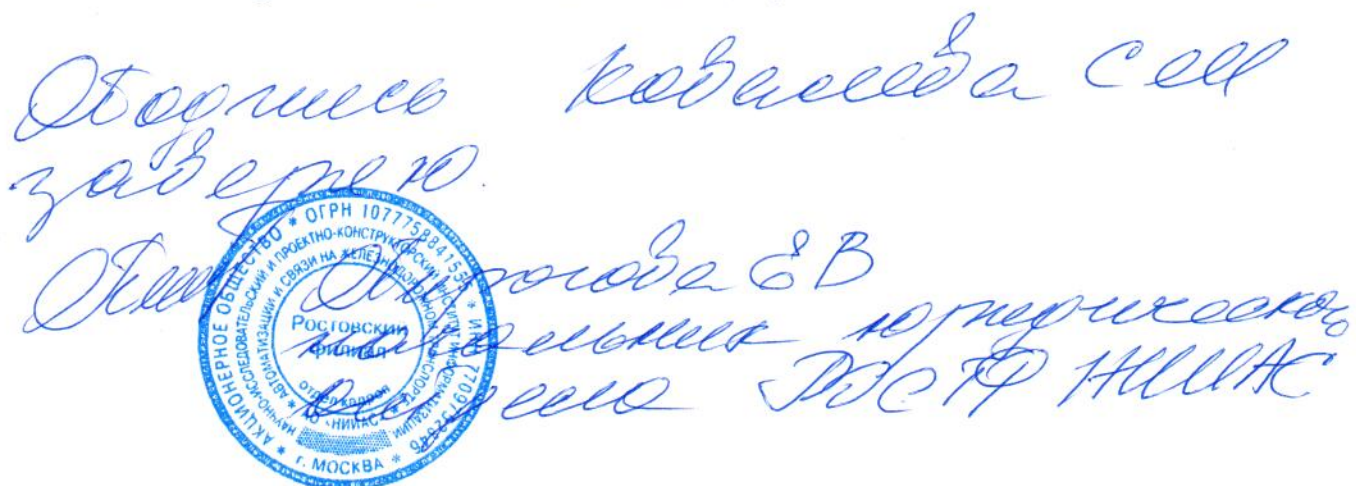 Подпись Ковалева С М
заверяю
Пирогова Е В
начальник юридического
отдела РОСТФ НИИАС
АКЦИОНЕРНОЕ ОБЩЕСТВО * ОГРН 1077758841555 * ИНН 7709752846
* г. МОСКВА *
НАУЧНО-ИССЛЕДОВАТЕЛЬСКИЙ И ПРОЕКТНО-КОНСТРУКТОРСКИЙ ИНСТИТУТ ИНФОРМАТИЗАЦИИ
* АВТОМАТИЗАЦИИ И СВЯЗИ НА ЖЕЛЕЗНОДОРОЖНОМ ТРАНСПОРТЕ *
АО "НИИАС"
Ростовский
филиал
отдел кадров